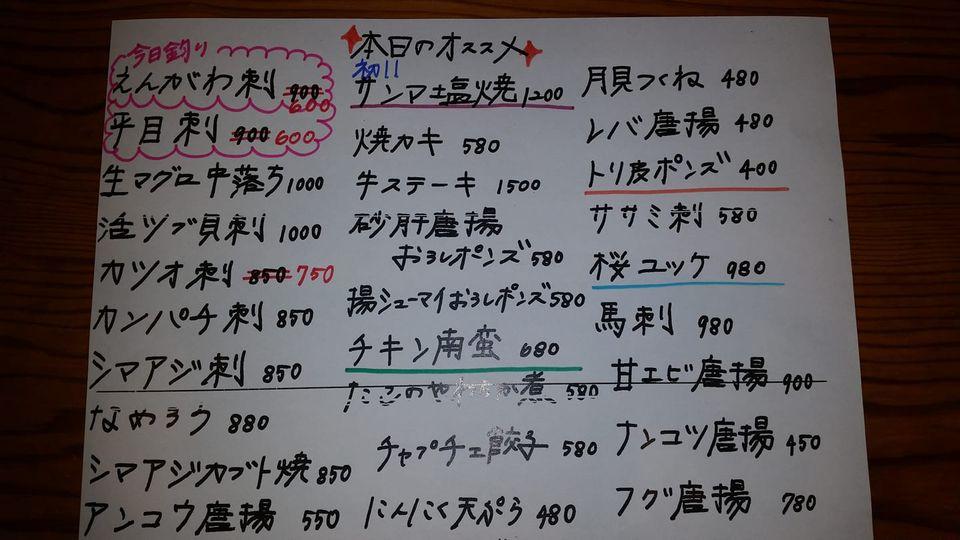 本日のオススメ
今日釣り
えんがわ刺 900 600
平目刺 900 600
生マグロ中落ち 1000
活ツブ貝刺 1000
カツオ刺 850 750
カンパチ刺 850
シマアジ刺 850
なめろう 880
シマアジカブト焼 850
アンコウ唐揚 550
初!!
サンマ塩焼 1200
焼カキ 580
牛ステーキ 1500
砂肝唐揚
おろしポンズ 580
揚シューマイおろしポンズ 580
チキン南蛮 680
たこのやわらか煮 580
チャプチェ餃子 580
にんにく天ぷら 480
月見つくね 480
レバ唐揚 480
トリ皮ポンズ 400
ササミ刺 580
桜ユッケ 980
馬刺 980
甘エビ唐揚 900
ナンコツ唐揚 450
フグ唐揚 780